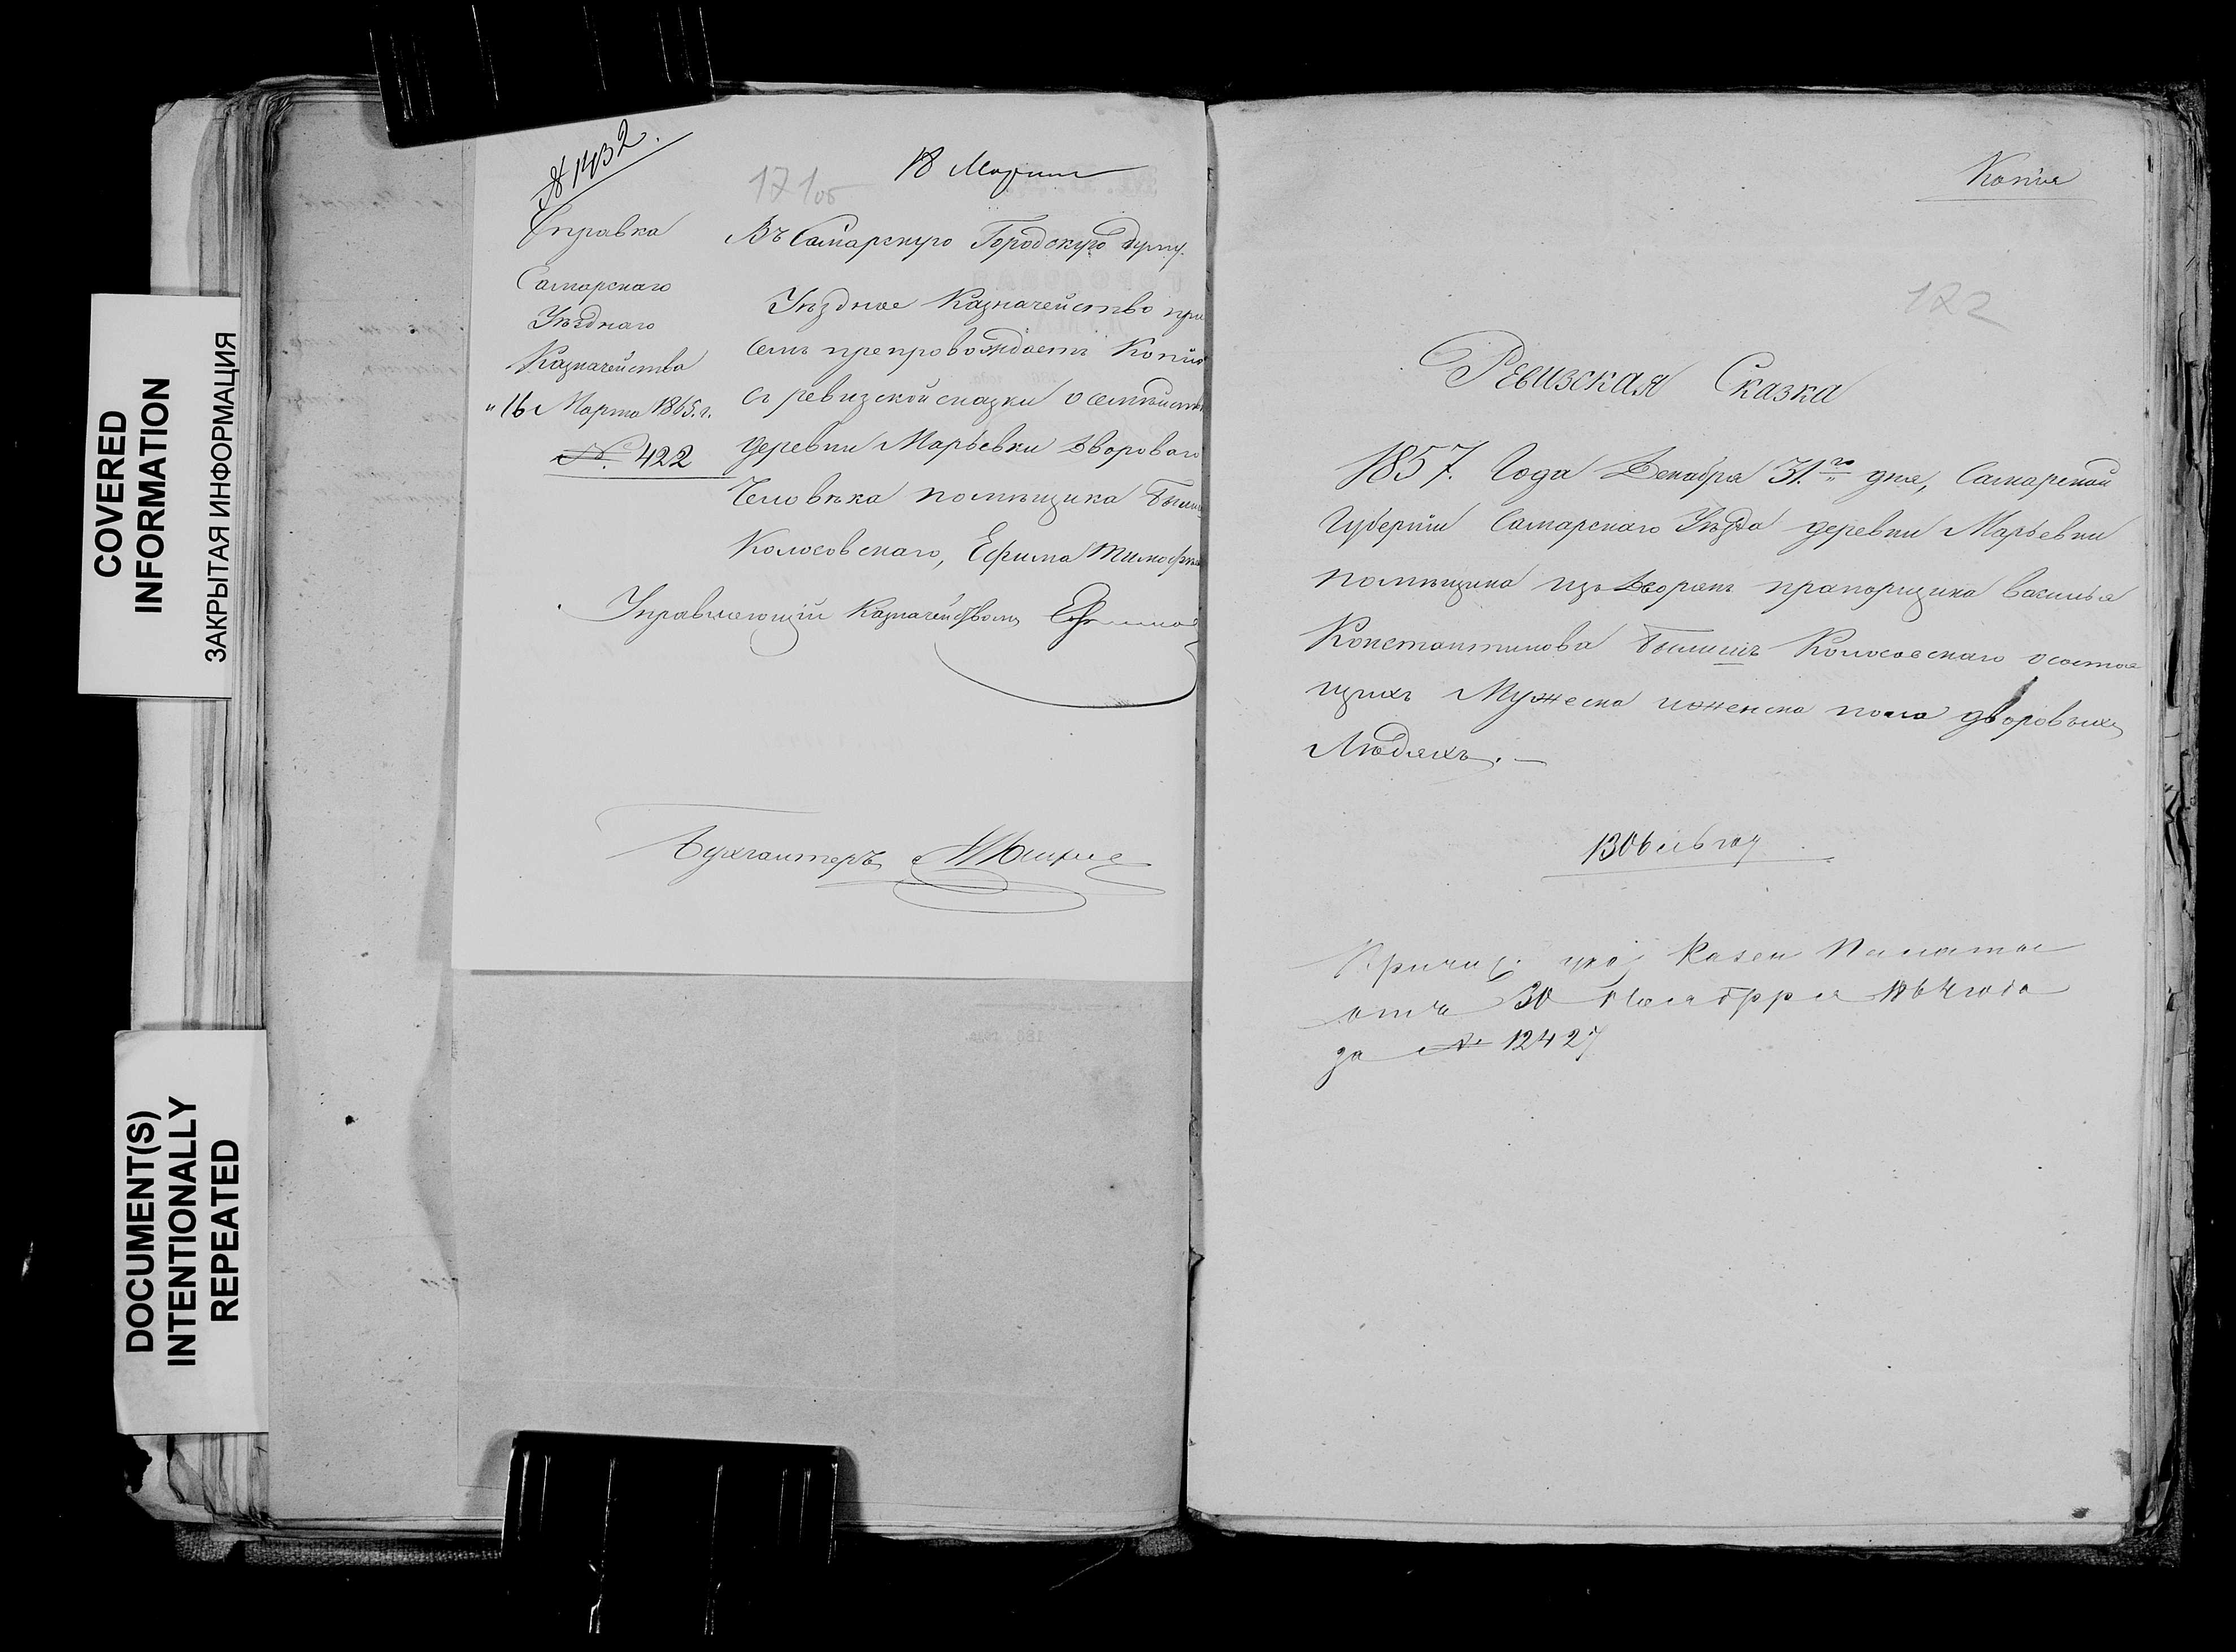 COVERED
INFORMATION
ЗАКРЫТАЯ ИНФОРМАЦИЯ
DOCUMENT(S)
INTENTIONALLY
REPEATED
№ 1432.
171об
18 Марта
Справка
Самарскаго
Уѣзднаго
Казначейства
"16 Марта 1865. г.
№. 422
Въ Самарскую Городскую Думу.
Уѣздное Казначейство при
семъ препровождаетъ Копію
съ ревизской сказки о семействѣ
деревни Марьевки двороваго
человѣка помѣщика
Колосовскаго, Ефима Тимофѣе
Управляющій Казначействомъ
Бухгалтеръ
Копія
122
Ревизская Сказка
1857. Года Декабря 31.го дня, Самарской
Губерніи Самарскаго Уѣзда деревни Марьевки
помѣщика изъ Дворянъ прапорщика Василья
Константинова Колосовскаго о состоя
щихъ Мужеска и женска пола дворовыхъ
Людяхъ. —
Казен Палаты
отъ 30 Ноября 1864 года
за № 12427